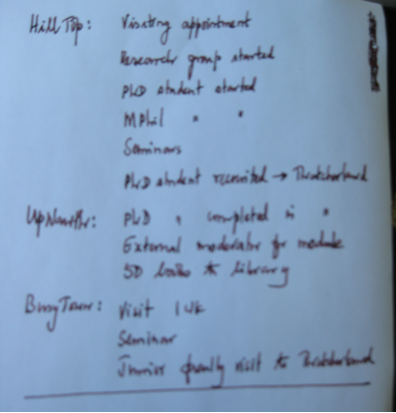 Hill Top: Visiting appointment
Research group started
PhD student started
MPhil " "
Seminars
PhD student recruited → Thatcherland
UpNorth: PhD " completed in "
External moderator for module
50 books to library
BusyTown: Visit 1 wk
Seminar
Junior faculty visit to Thatcherland